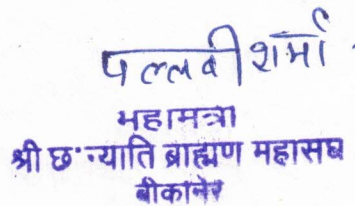 पल्लवी शर्मा
महामत्रा
श्री छ:न्याति ब्राह्मण महासघ
बीकानेर